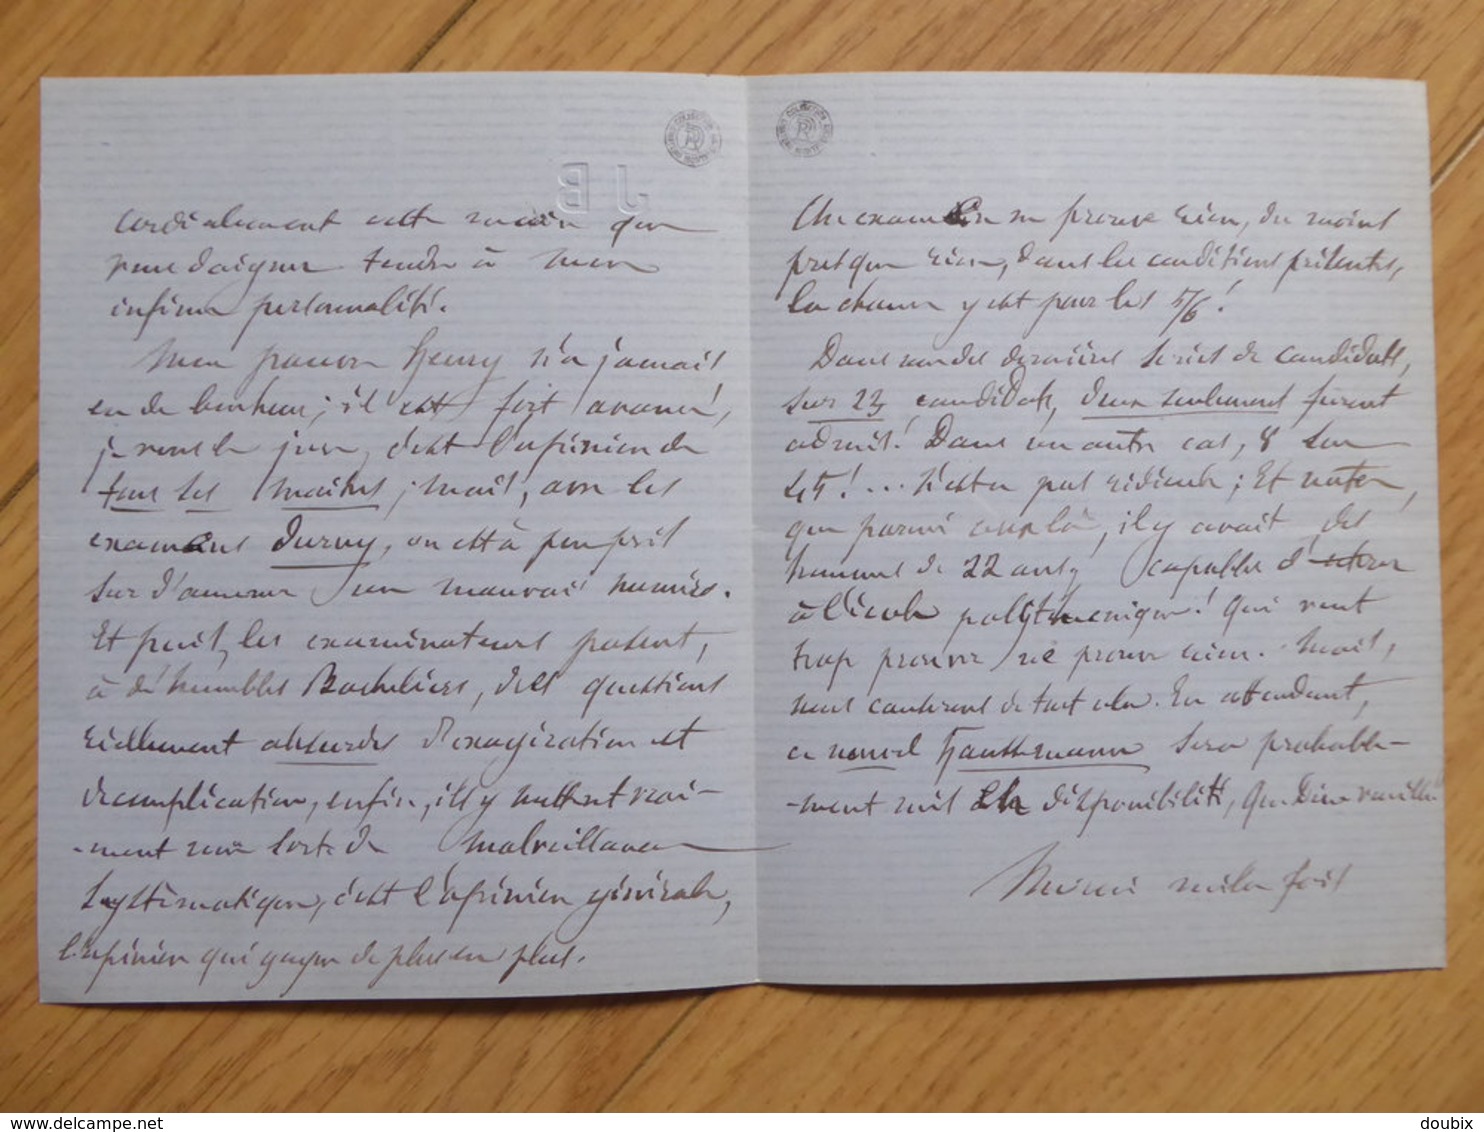 JB
cordialement cette main que
vous daignez tendre à mon
infime personnalité.
Mon pauvre Henry n'a jamais
eu de bonheur; il est fort avancé,
je vous le jure, c'est l'opinion de
tous ses maîtres; mais, avec les
examens Duruy, on est à peu près
sûr d'amener un mauvais numéro.
Et puis, les examinateurs posent,
à d'humbles Bacheliers, des questions
réellement absurdes d'exagération et
de complication, enfin, ils y mettent vrai-
-ment une sorte de malveillance
systématique, c'est l'opinion générale,
l'opinion qui gagne de plus en plus.
Un examen ne prouve rien, du moins
presque rien, dans les conditions présentes,
la chance y est pour les 5/6!
Dans une des dernières séries de candidats,
sur 23 candidats, deux seulement furent
admis! Dans un autre cas, 8 sur
45!... n'est-ce pas ridicule; Et notez,
que parmi ceux là, il y avait des
hommes de 22 ans, capables d'entrer
à l'école polytechnique! Qui veut
trop prouver ne prouve rien. Mais,
nous causerons de tout cela. En attendant,
ce nouvel Haussmann sera probable-
-ment mis en disponibilité, que Dieu veuille!
Merci mille fois
delcampe.net
doubix